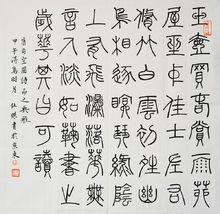 玉壺買春賞雨茆
屋坐中佳士左右
脩竹白雲初晴幽
鳥相逐眠琴綠陰
上有飛瀑落花無
言人淡如菊書之
歲華其曰可讀
唐司空圖詩品之典雅
甲午